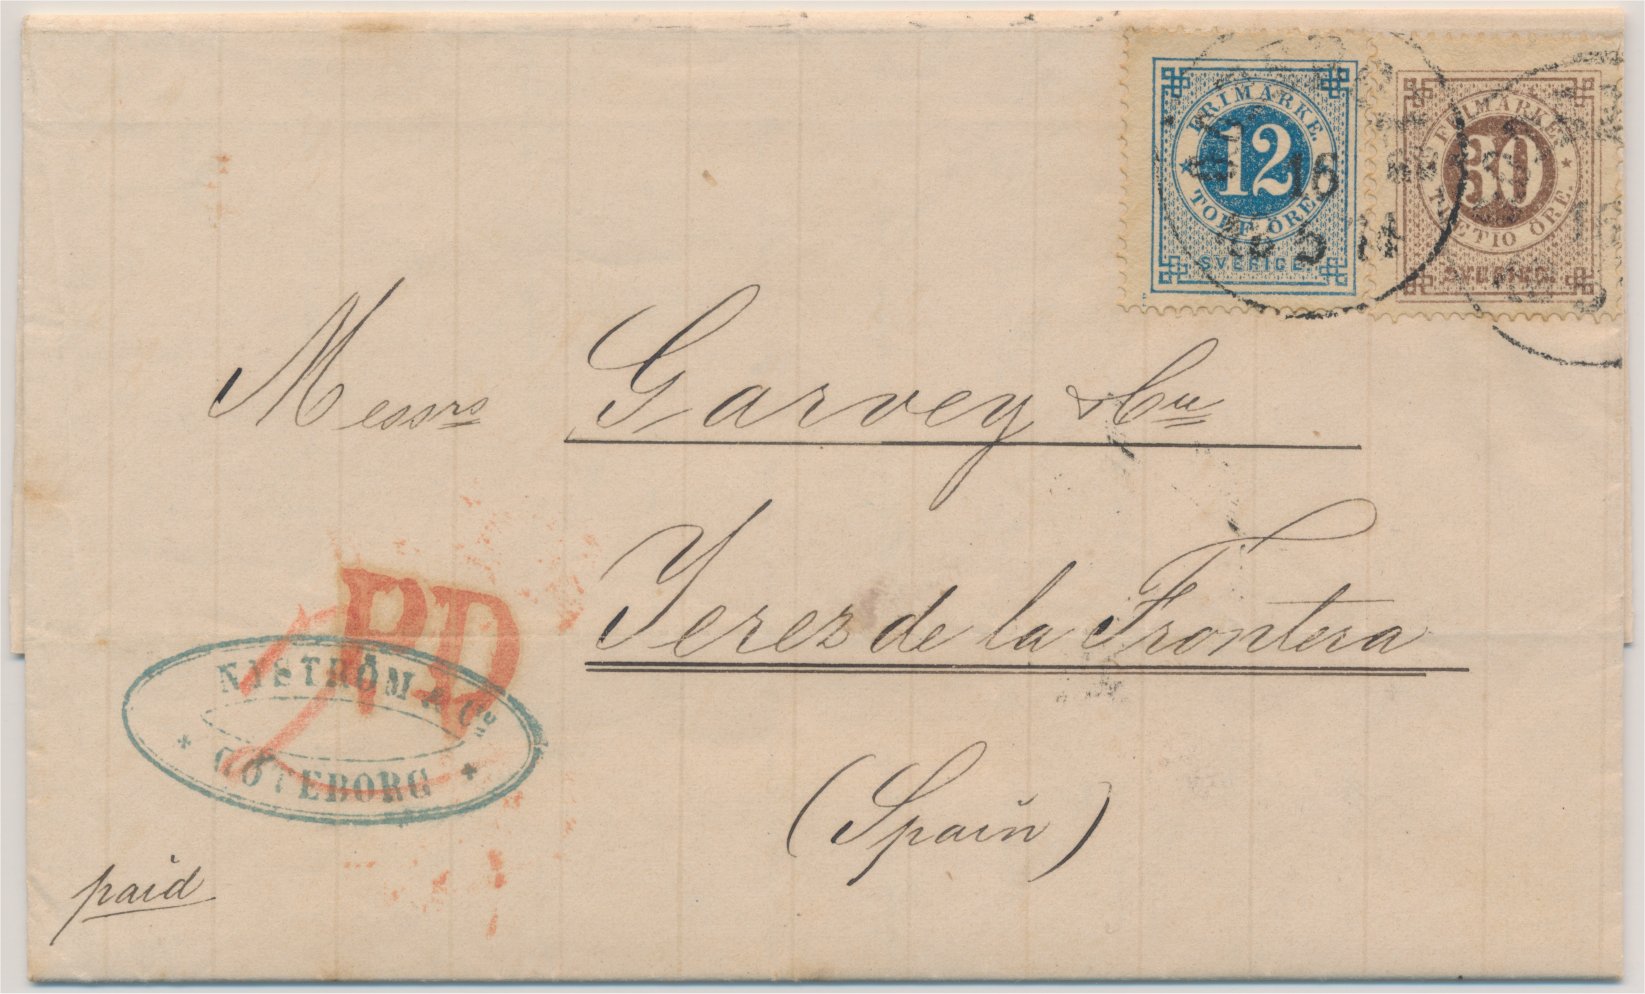 FRIMÄRKE.
12
TOLF ÖRE.
SVERIGE.
FRIMÄRKE
30
TRETIO ÖRE.
SVERIGE.
16
5
74
Messrs Garvey & Cie
Jerez de la Frontera
(Spain)
PD
NYSTRÖM & Co
* GÖTEBORG *
paid